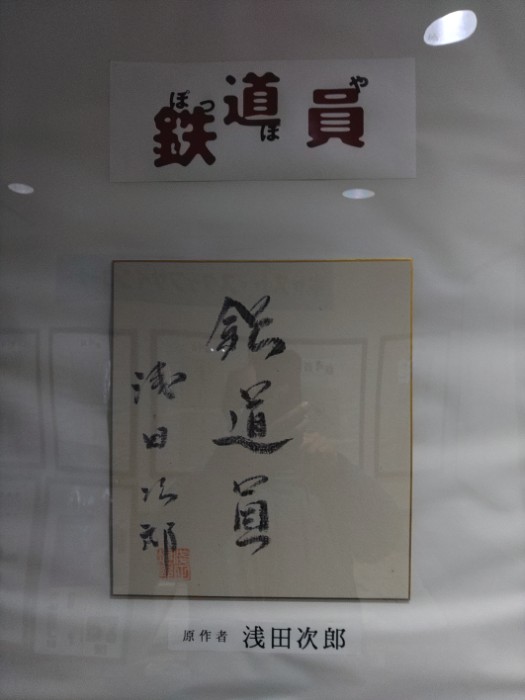 鉄道員
ぽっぽや
鉄道員
浅田次郎
原作者 浅田次郎